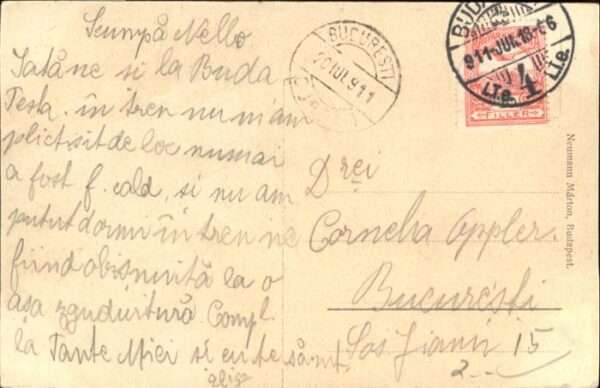 Scumpă Nello
Iată-ne si la Buda
Pesta. în tren nu m'am
plictisit de loc numai
a fost f. cald, si nu am
putut dormi în tren ne
fiind obisnuită la o
așa zguduitură. Compl.
la Tante Miei si eu te sărut
BUCURESTI
20 IUL 911
BUDA
911 JUL 18
4
FILLER
Drei
Cornelia Appler.
Bucuresti
Sos Jianu 15
2
Neumann Márton, Budapest.